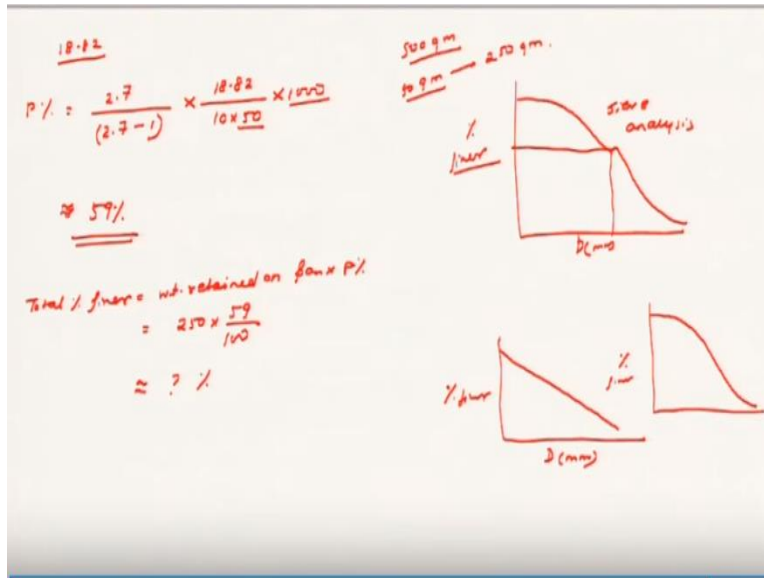 18.82
P% = 2.7 / (2.7-1) × 18.82 / 10×50 × 1000
≈ 59%
Total % finer = wt. retained on pan × P%
= 250 × 59 / 100
≈ ? %
500 gm
50 gm → 250 gm.
% finer
sieve analysis
D(mm)
% finer
D(mm)
% finer